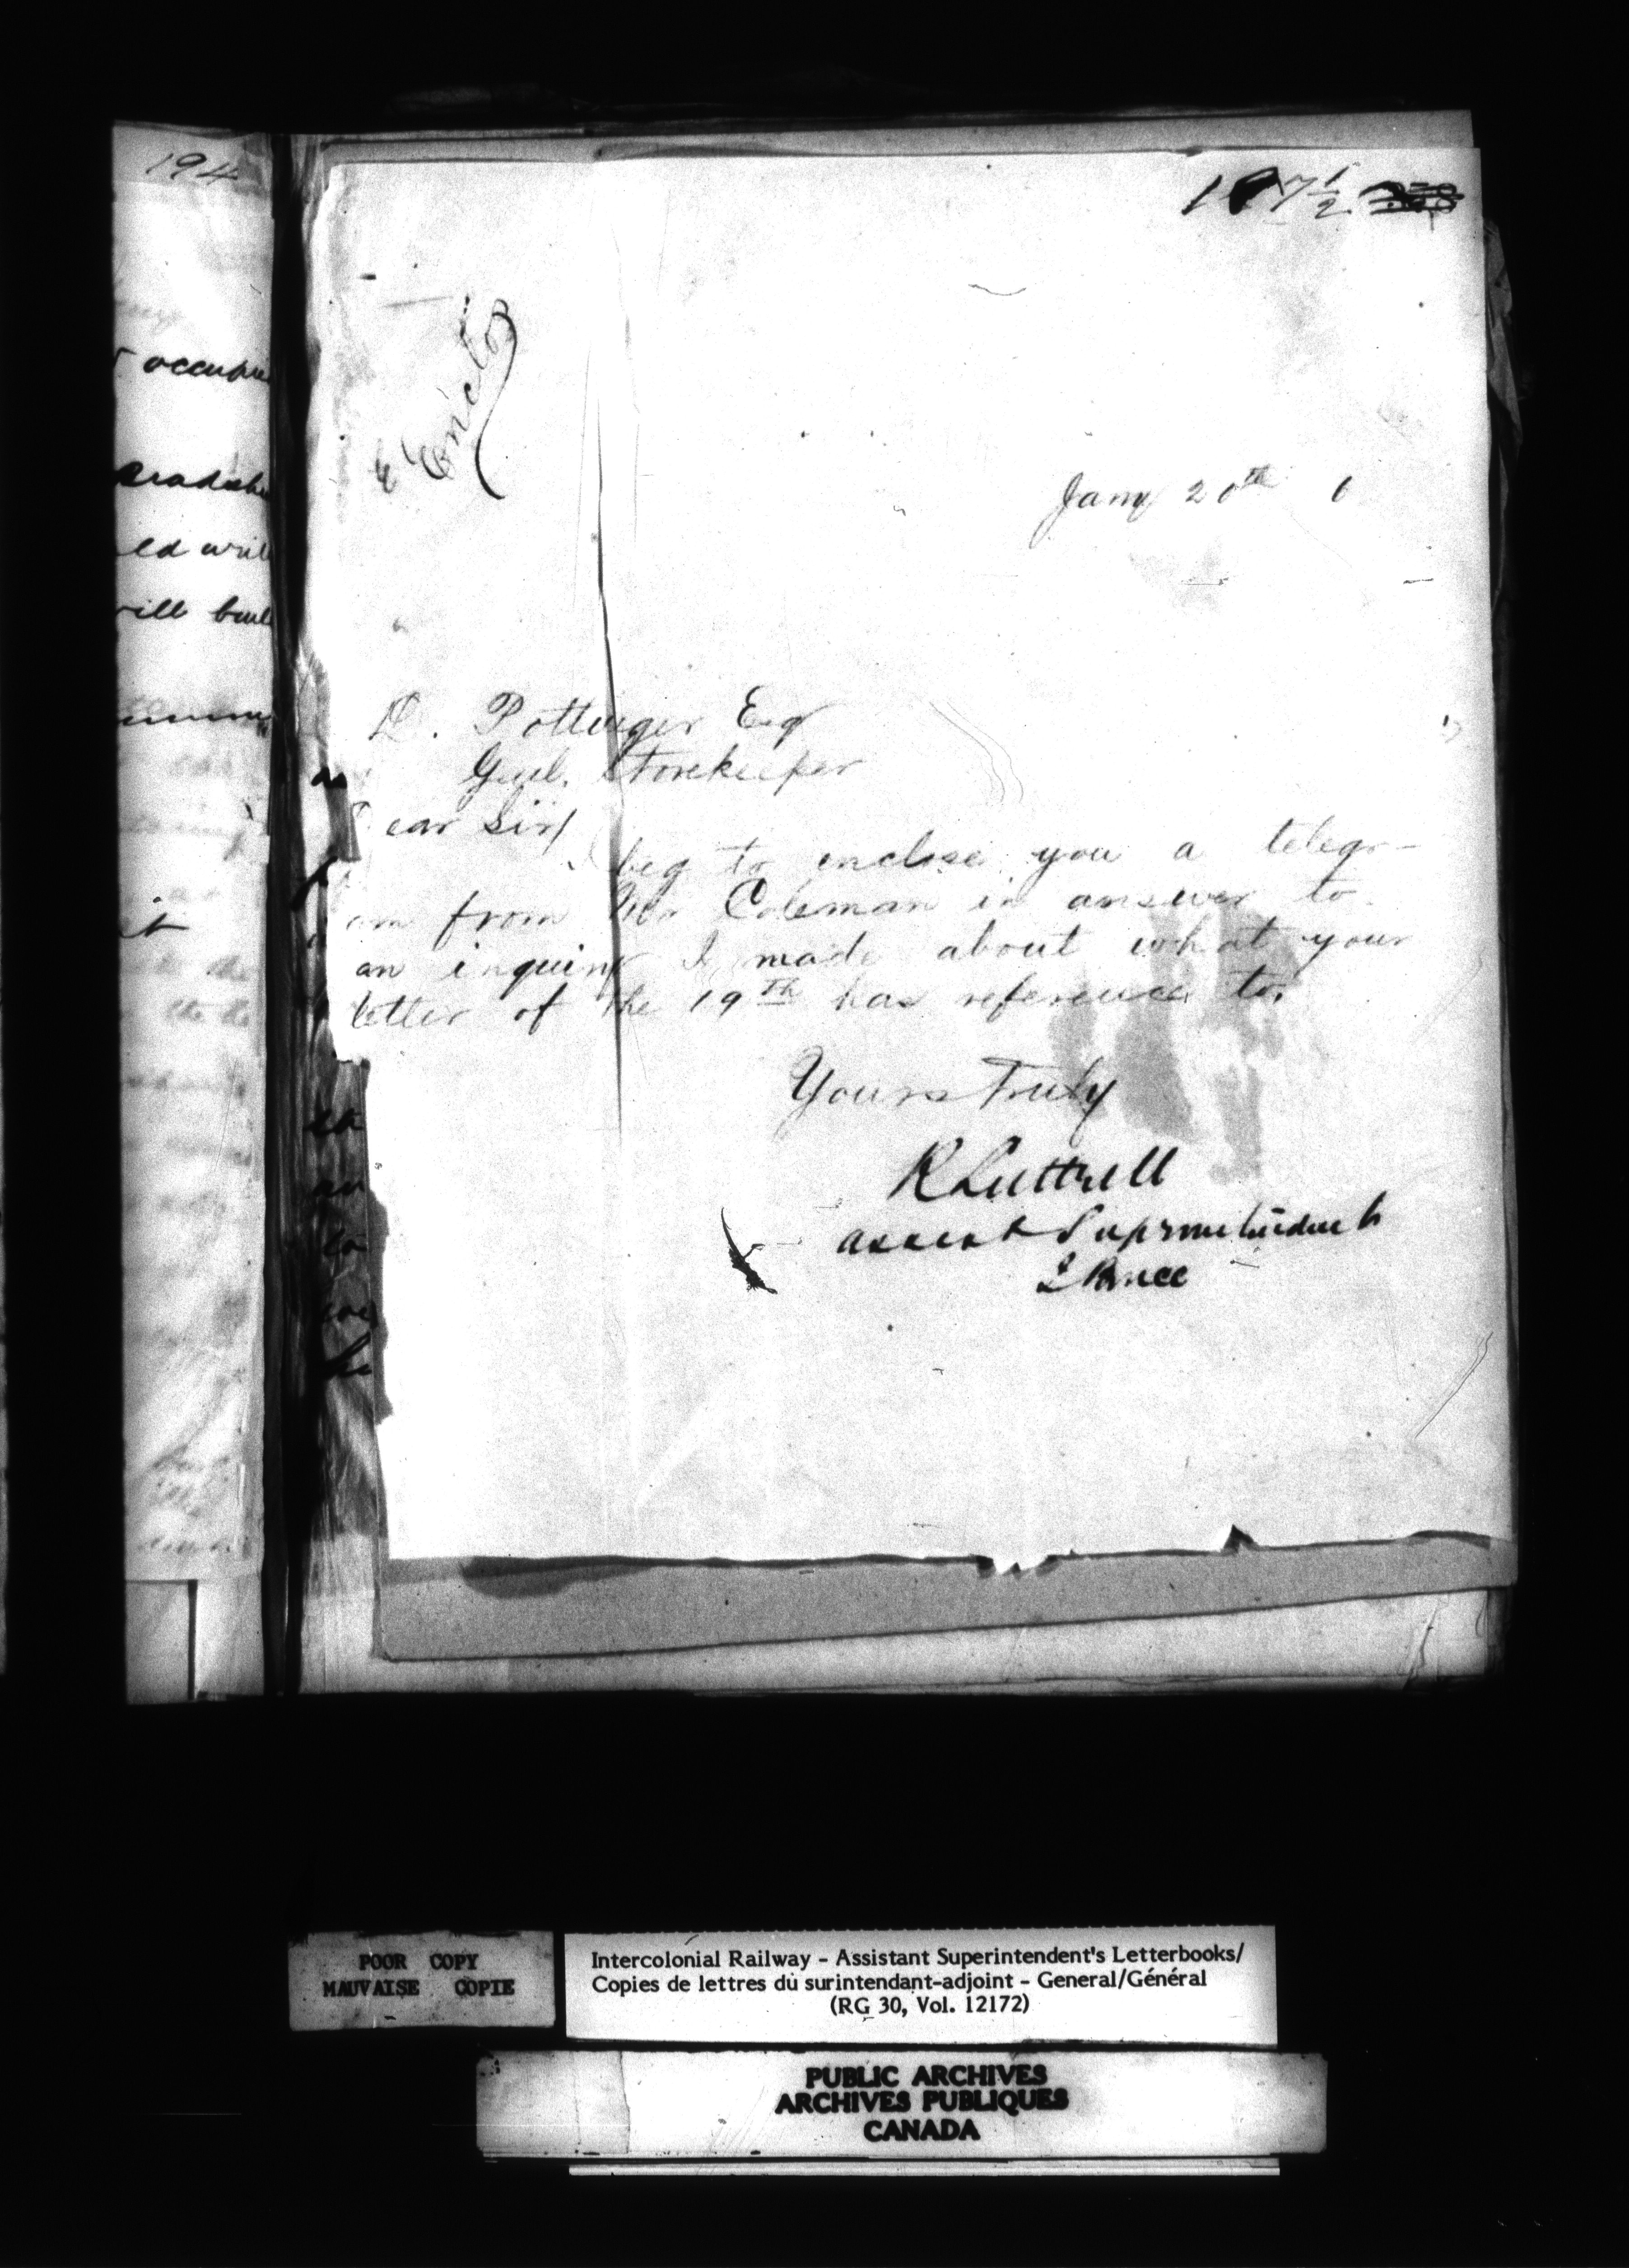 194
occupie
ed will
will buil
it
197 1/2
Enclo
Jany 20th 6
D. Pottinger Esq
Genl. Storekeeper
Dear Sir/
I beg to enclose you a telegr-
am from Mr Coleman in answer to
an inquiry I made about what your
letter of the 19th has reference to.
Yours Truly
R Luttrell
Assist Superintendent
POOR COPY
MAUVAISE COPIE
Intercolonial Railway - Assistant Superintendent's Letterbooks/
Copies de lettres du surintendant-adjoint - General/Général
(RG 30, Vol. 12172)
PUBLIC ARCHIVES
ARCHIVES PUBLIQUES
CANADA